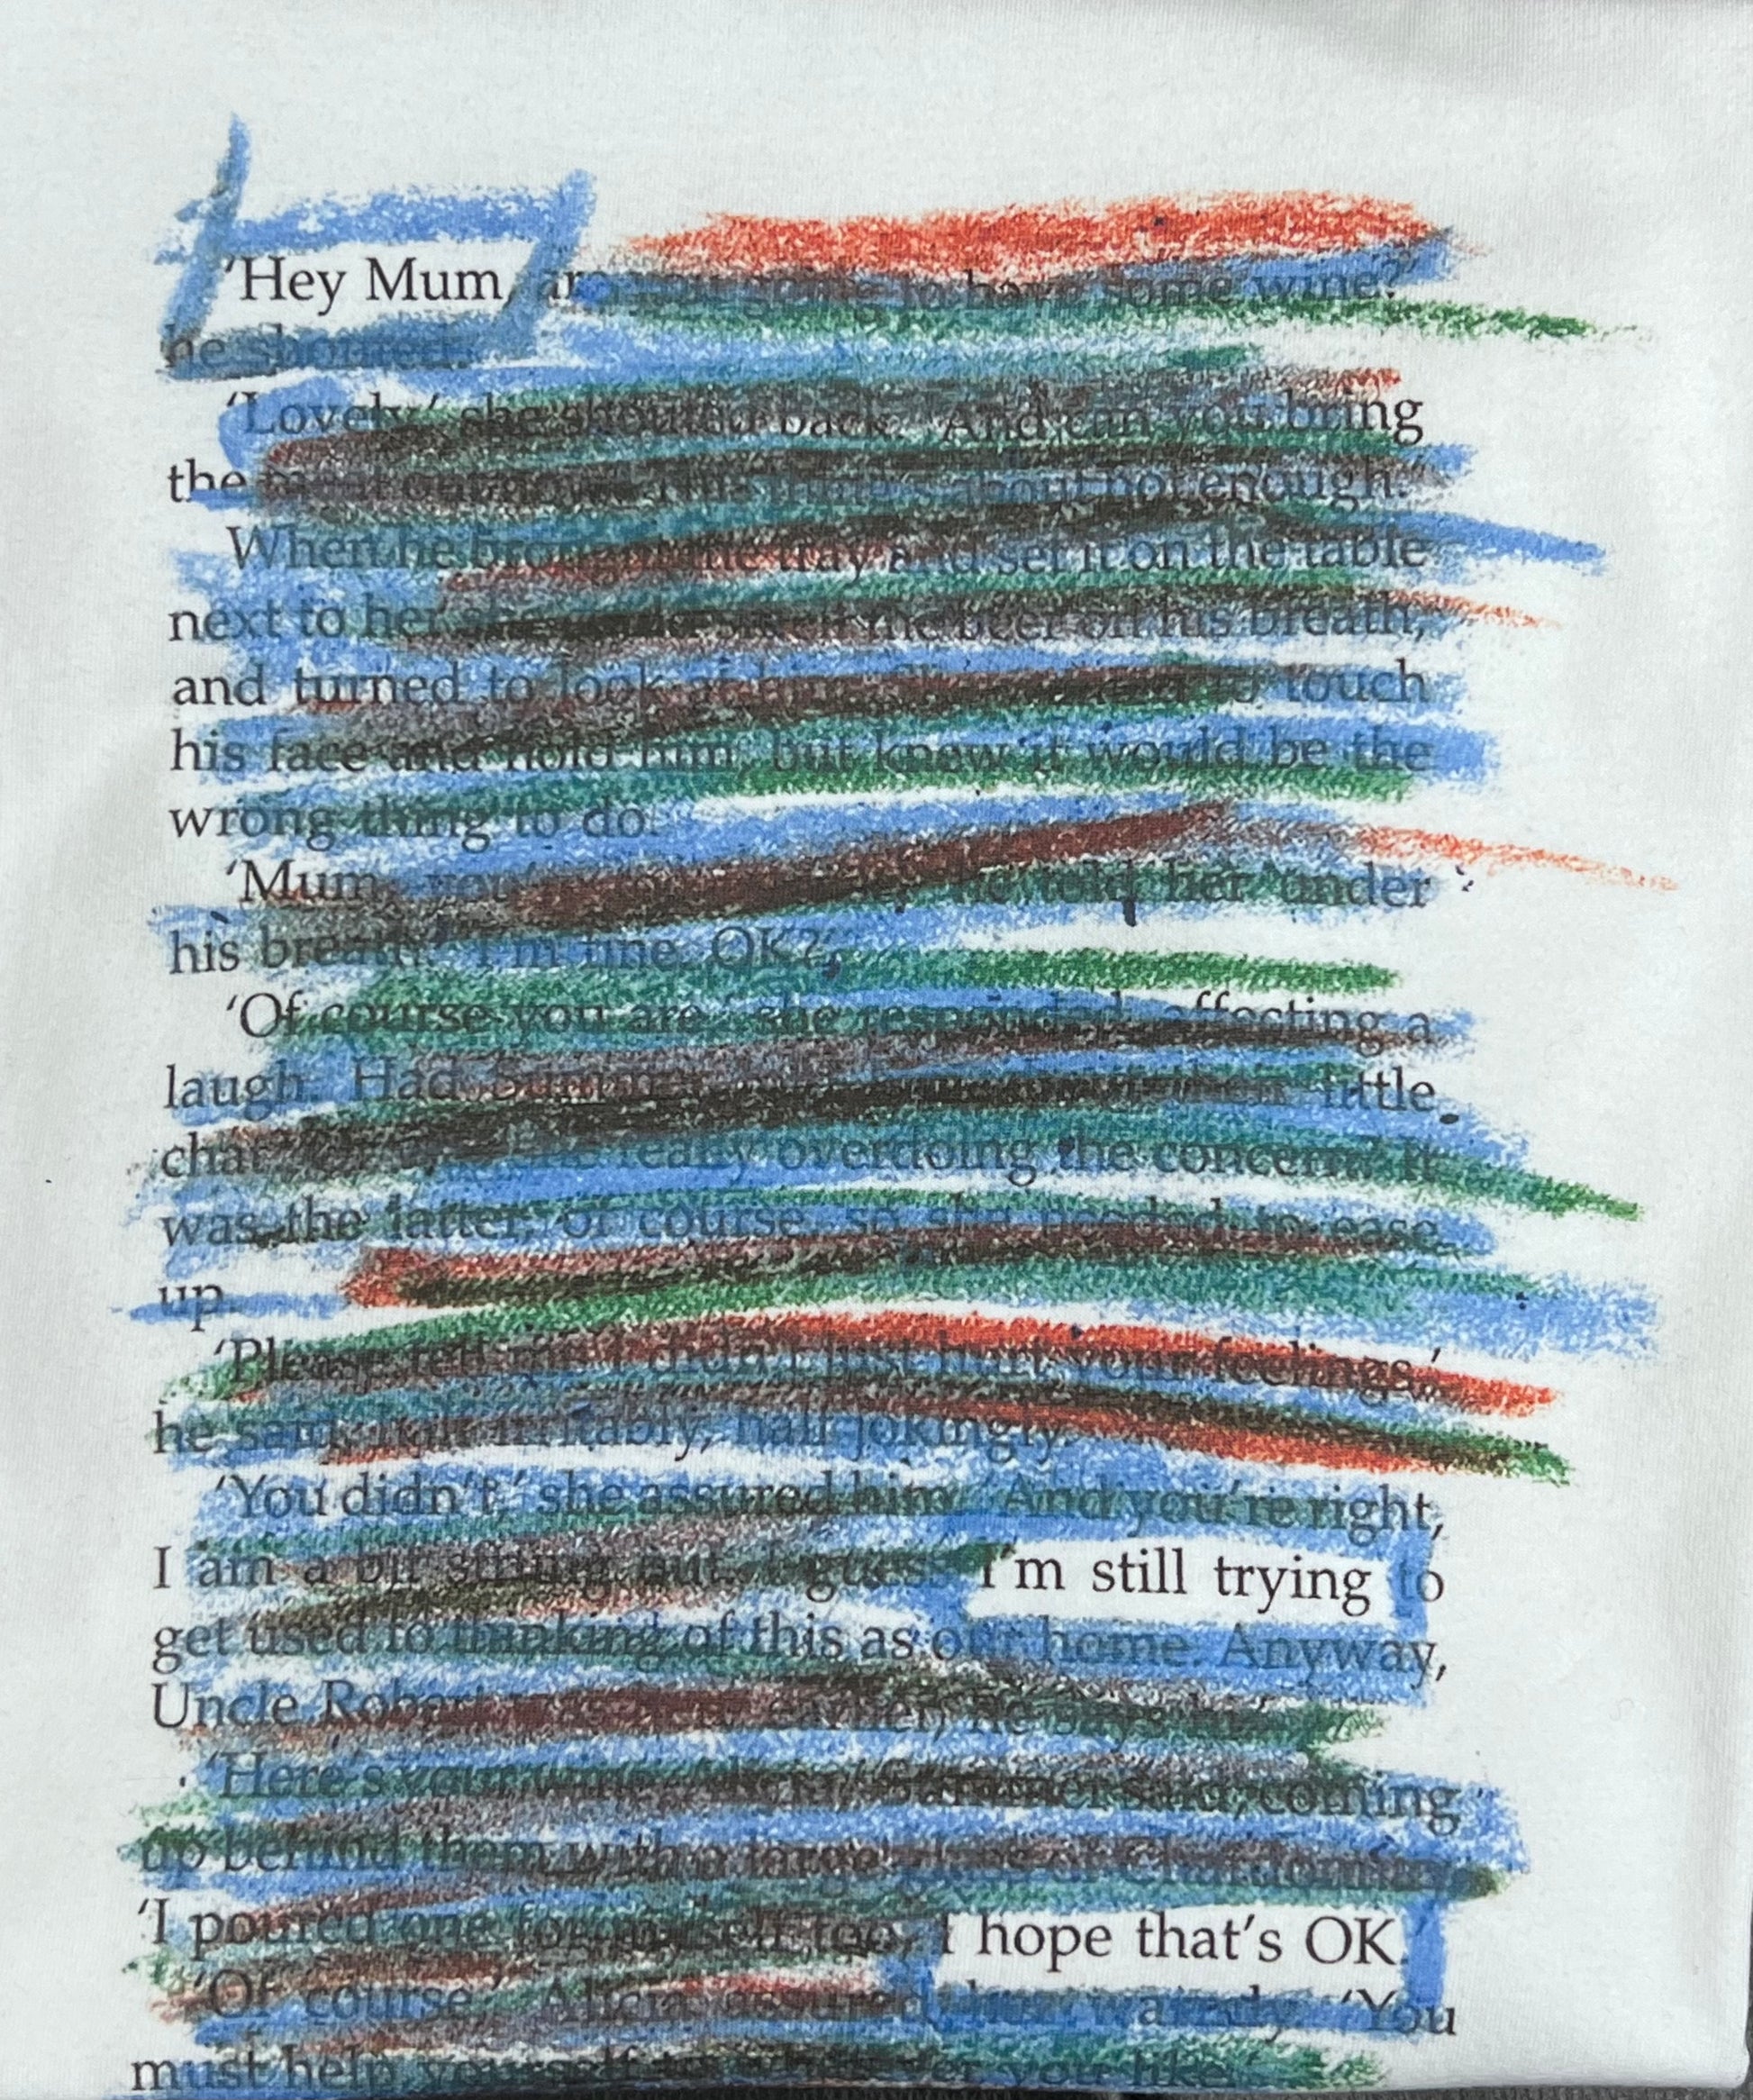 'Hey Mum, are to have some wine?'
he shouted.
'Lovely,' she shouted back. 'And can you bring
the about not enough.'
When he brought the tray and set it on the table
next to her she the beer on his breath,
and turned to look at him. to touch
his face and hold him, but knew it would be the
wrong thing to do.
'Mum, you he told her under
his breath. 'I'm fine. OK?'
'Of course you are,' she responded, affecting a
laugh. Had little
chat really overdoing the concern? It
was the latter, of course, so she needed to ease
up.
'Please tell me I didn't just hurt your feelings,'
he said, half irritably, half jokingly.
'You didn't,' she assured him. 'And you're right,
I am a bit strung out, I guess. I'm still trying to
get used to thinking of this as our home. Anyway,
Uncle Robert earlier, he says
'Here's your said, coming
up behind them with a large glass of Chardonnay.
'I poured one for myself too, I hope that's OK.'
'Of course,' Alicia assured her warmly. 'You
must help yourself to whatever you like.'